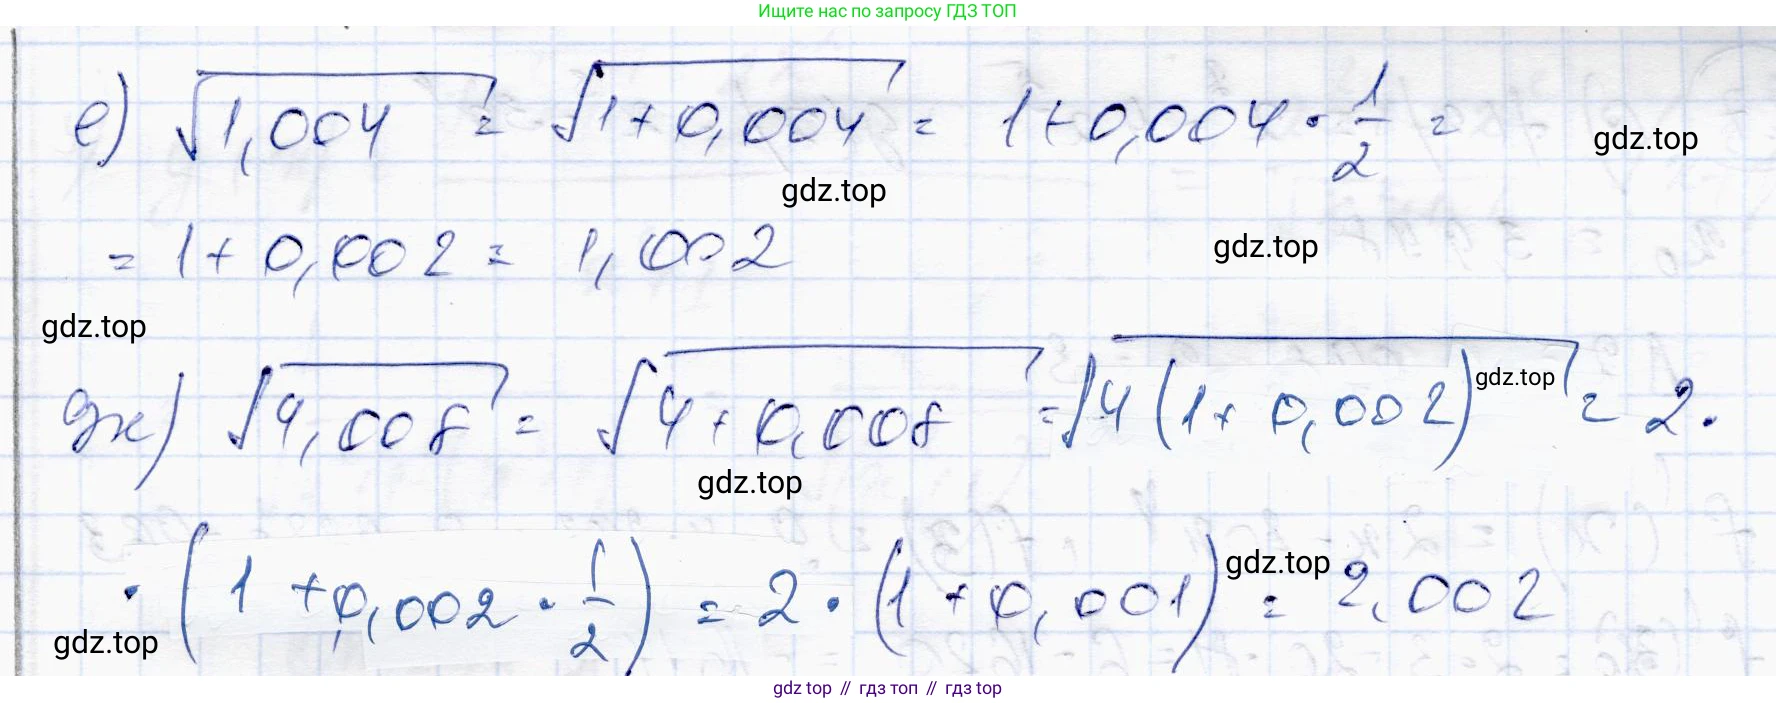 Ищите нас по запросу ГДЗ ТОП
е) √1,004 = √1+0,004 = 1+0,004 · 1/2 =
gdz.top
gdz.top
= 1+0,002 = 1,002
gdz.top
gdz.top
ж) √4,008 = √4+0,008 = √4(1+0,002) = 2·
gdz.top
gdz.top
· (1+0,002 · 1/2) = 2 · (1+0,001) = 2,002
gdz.top
gdz.top
gdz top // гдз топ // gdz top